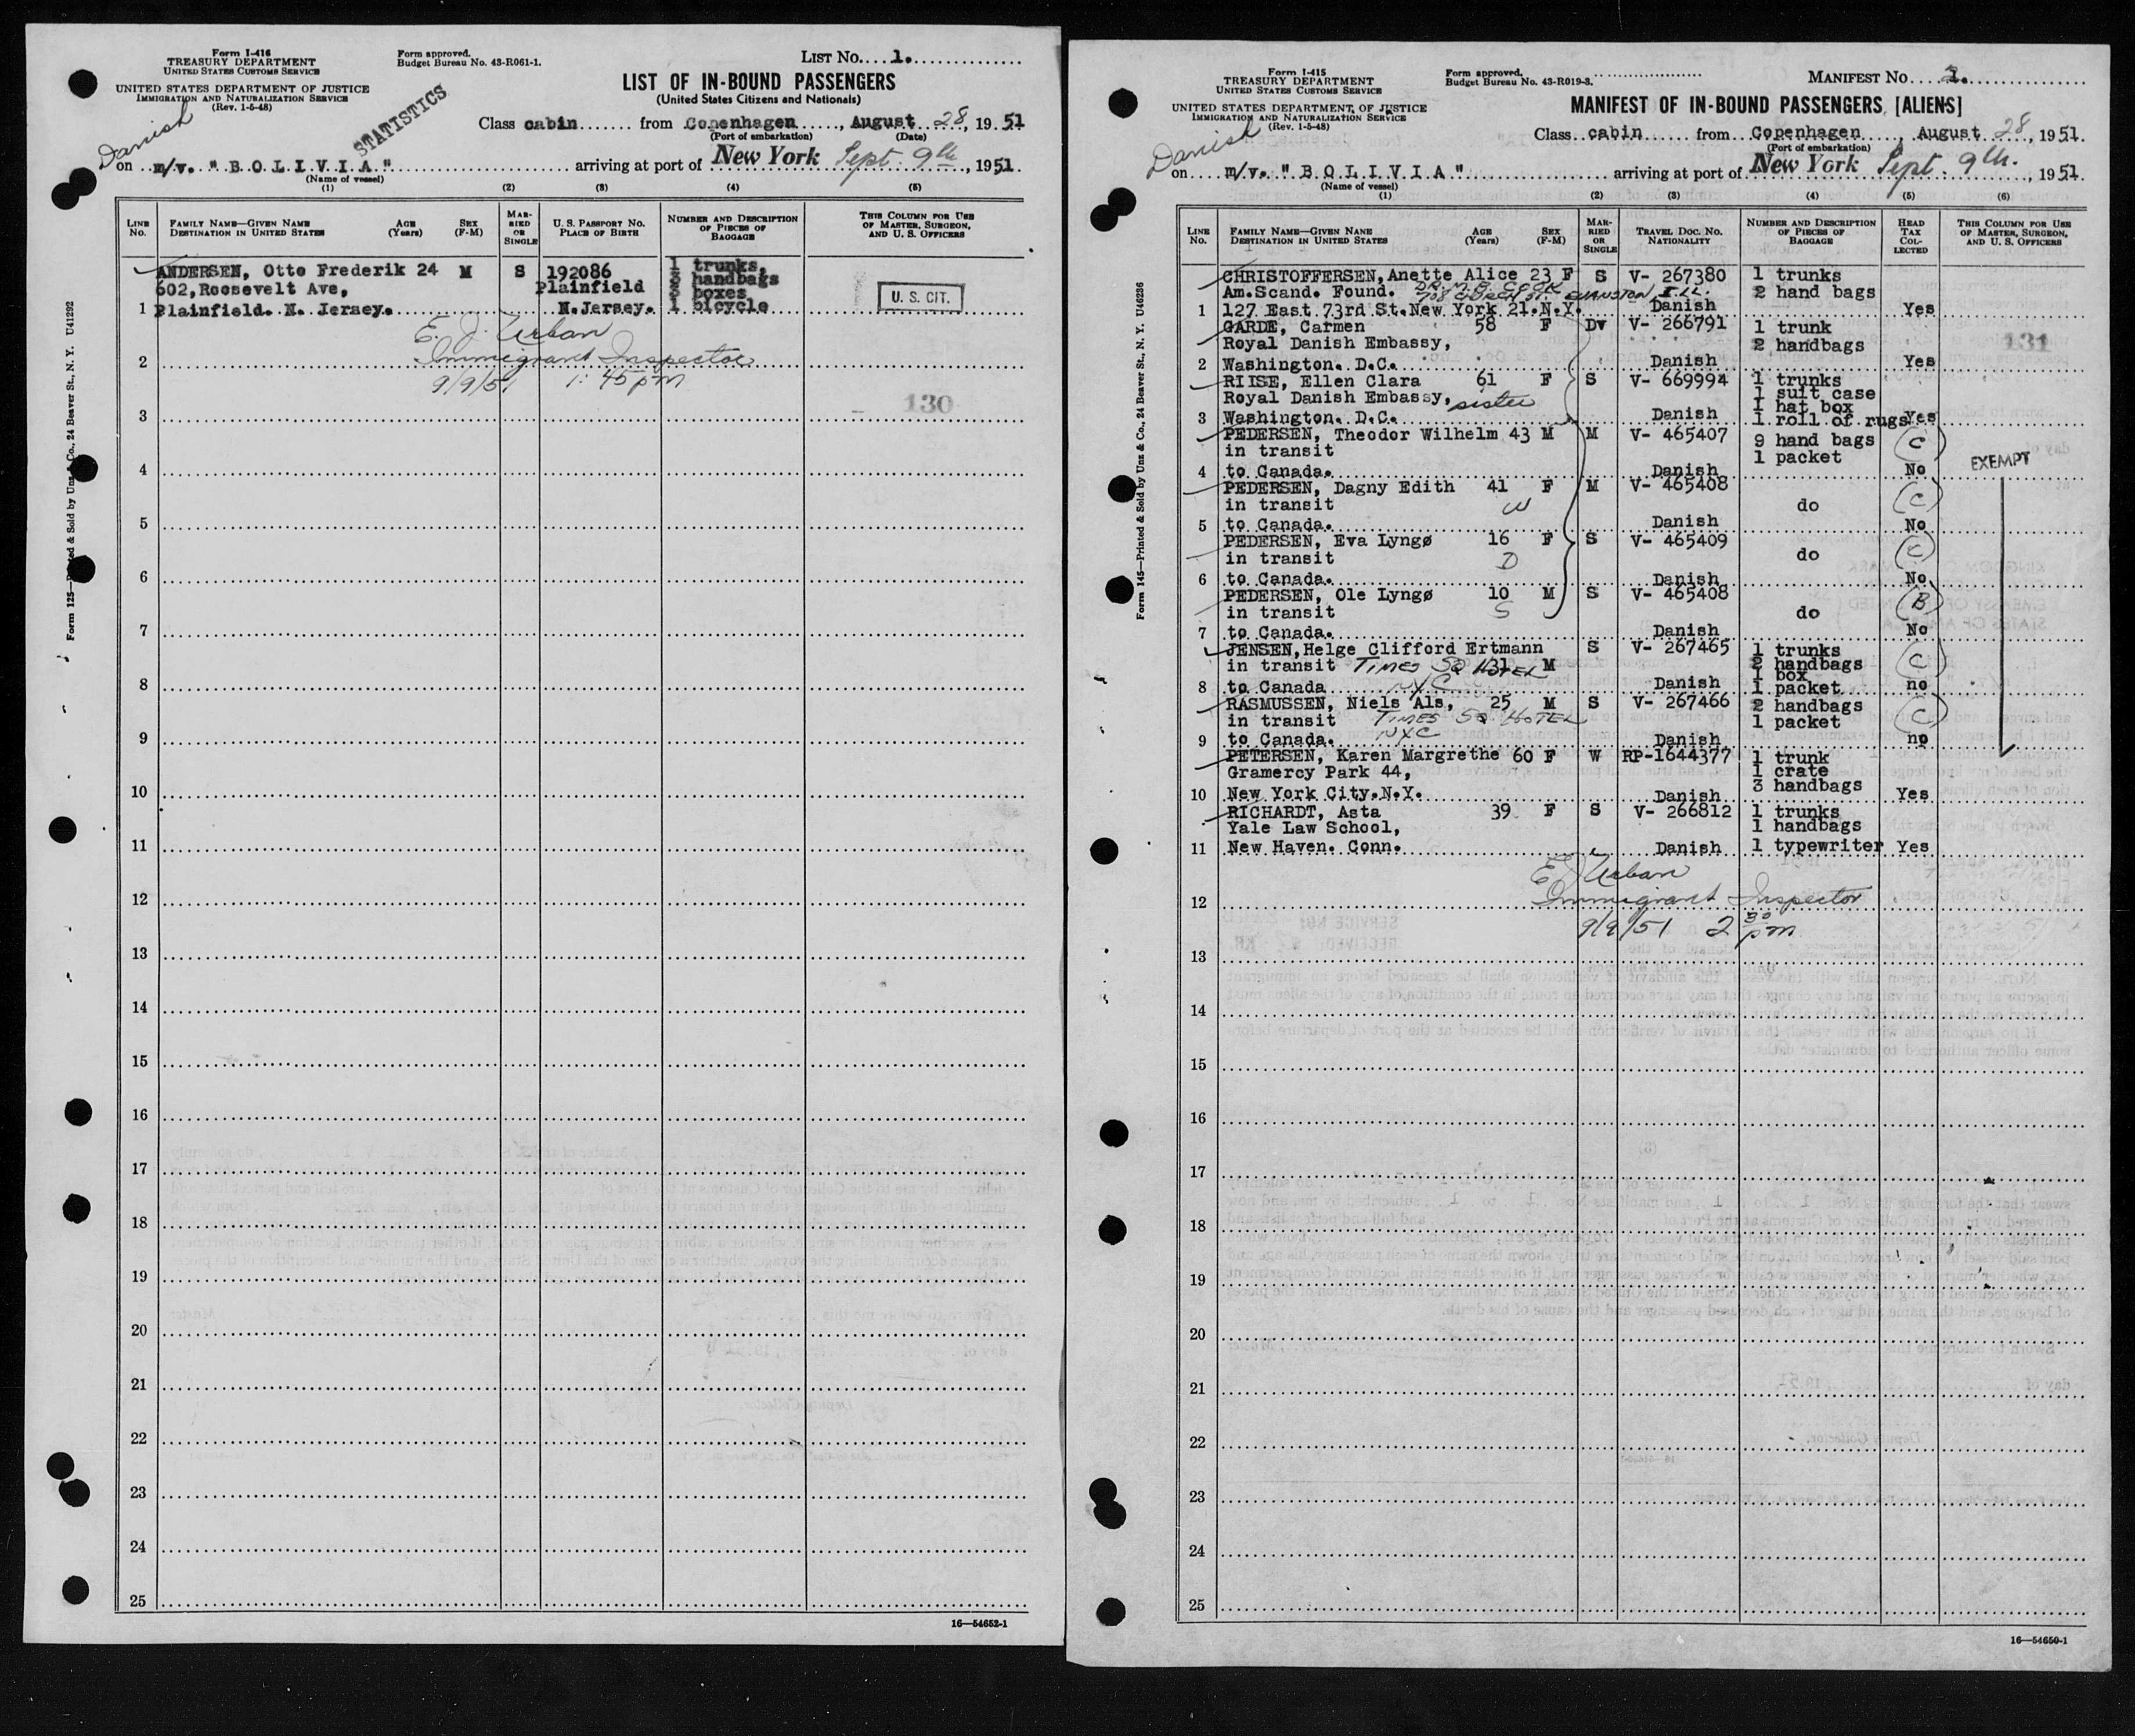 Form I-416
TREASURY DEPARTMENT
UNITED STATES CUSTOMS SERVICE
UNITED STATES DEPARTMENT OF JUSTICE
IMMIGRATION AND NATURALIZATION SERVICE
(Rev. 1-5-48)
Form approved.
Budget Bureau No. 43-R061-1.
LIST No. 1.
LIST OF IN-BOUND PASSENGERS
(United States Citizens and Nationals)
STATISTICS
Danish
Class cabin from Copenhagen, August 28, 1951
(Port of embarkation) (Date)
on m/v. "BOLIVIA" arriving at port of New York Sept. 9th, 1951.
(Name of vessel)
(1) (2) (3) (4) (5)
LINE No. FAMILY NAME—GIVEN NAME DESTINATION IN UNITED STATES AGE (Years) SEX (F-M) MARRIED OR SINGLE U. S. PASSPORT NO. PLACE OF BIRTH NUMBER AND DESCRIPTION OF PIECES OF BAGGAGE THIS COLUMN FOR USE OF MASTER, SURGEON, AND U. S. OFFICERS
ANDERSEN, Otto Frederik 24 M S 192086 1 trunks,
602, Roosevelt Ave, Plainfield 3 handbags
3 boxes
1 Plainfield. N. Jersey. N.Jersey. 1 bicycle
U. S. CIT.
E. J. Urban
2 Immigrant Inspector
9/9/51 1:45 pm
3 130
4
5
6
7
8
9
10
11
12
13
14
15
16
17
18
19
20
21
22
23
24
25
16—54652-1
Co., 24 Beaver St., N. Y. U41292
Form 125—
Form I-415
TREASURY DEPARTMENT
UNITED STATES CUSTOMS SERVICE
UNITED STATES DEPARTMENT OF JUSTICE
IMMIGRATION AND NATURALIZATION SERVICE
(Rev. 1-5-48)
Form approved.
Budget Bureau No. 43-R019-3.
MANIFEST No.
MANIFEST OF IN-BOUND PASSENGERS [ALIENS]
Danish
Class cabin from Copenhagen, August 28, 1951.
(Port of embarkation)
on m/v. "BOLIVIA" arriving at port of New York Sept. 9th., 1951.
(Name of vessel)
(1) (2) (3) (4) (5) (6)
LINE No. FAMILY NAME—GIVEN NAME DESTINATION IN UNITED STATES AGE (Years) SEX (F-M) MARRIED OR SINGLE TRAVEL DOC. NO. NATIONALITY NUMBER AND DESCRIPTION OF PIECES OF BAGGAGE HEAD TAX COLLECTED THIS COLUMN FOR USE OF MASTER, SURGEON, AND U. S. OFFICERS
CHRISTOFFERSEN, Anette Alice 23 F S V- 267380 1 trunks
Am.Scand. Found. DR. M.B. COOK 2 hand bags
708 CHURCH ST. EVANSTON ILL.
1 127 East 73rd St.New York 21.N.Y. Danish Yes
GARDE, Carmen 58 F Dv V- 266791 1 trunk
Royal Danish Embassy, 2 handbags 131
2 Washington. D.C. Danish Yes
RIISE, Ellen Clara 61 F S V- 669994 1 trunks
1 suit case
Royal Danish Embassy, sister 1 hat box
3 Washington. D.C. Danish 1 roll of rugs Yes
PEDERSEN, Theodor Wilhelm 43 M M V- 465407 9 hand bags (C)
in transit 1 packet EXEMPT
4 to Canada. Danish No
PEDERSEN, Dagny Edith 41 F M V- 465408 (C)
in transit W do
5 to Canada. Danish No
PEDERSEN, Eva Lyngø 16 F S V- 465409 (C)
in transit D do
6 to Canada. Danish No
PEDERSEN, Ole Lyngø 10 M S V- 465408 (B)
in transit S do
7 to Canada. Danish No
JENSEN, Helge Clifford Ertmann S V- 267465 1 trunks (C)
in transit TIMES SQ HOTEL 31 M 2 handbags
1 box
8 to Canada NYC Danish 1 packet no
RASMUSSEN, Niels Als, 25 M S V- 267466 2 handbags (C)
in transit TIMES SQ HOTEL 1 packet
9 to Canada. NYC Danish no
PETERSEN, Karen Margrethe 60 F W RP-1644377 1 trunk
Gramercy Park 44, 1 crate
3 handbags
10 New York City.N.Y. Danish Yes
RICHARDT, Asta 39 F S V- 266812 1 trunks
Yale Law School, 1 handbags
11 New Haven. Conn. Danish 1 typewriter Yes
E J Urban
12 Immigrant Inspector
9/9/51 2 30 pm
13
14
15
16
17
18
19
20
21
22
23
24
25
16—54650-1
Form 145—Printed & Sold by Unz & Co., 24 Beaver St., N. Y. U46236